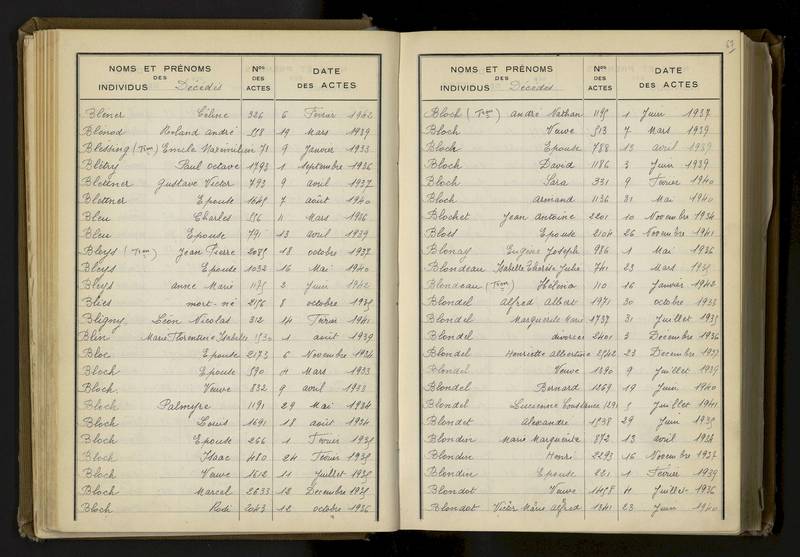 NOMS ET PRÉNOMS DES INDIVIDUS Décédés Nos DES ACTES DATE DES ACTES
Blener Céline 326 6 Février 1942
Blenod Roland André 19 Mars 1939
Blessing (Vve) Emile Maximilien 71 9 Janvier 1933
Blétry Paul Octave 1793 1 Septembre 1936
Blettner Gustave Victor 793 9 avril 1937
Blettner Epouse 7 août 1940
Bleu Charles 11 Mars
Bleu Epouse 791 13 avril 1939
Bleys Jean Pierre 18 octobre 1937
Bleys Epouse 1032 16 Mai 1940
Bleys anne Marie 2 Juin 1942
Blies mort-né 8 octobre
Bligny Léon Nicolas 312 14 Février 1941
Blin Marie Florentine Isabelle 1 août 1939
Bloc Epouse 2173 6 Novembre 1934
Bloch Epouse Mars 1933
Bloch Veuve 832 9 avril 1933
Bloch Palmyre 1191 29 Mai 1934
Bloch Louis 1691 18 août 1934
Bloch Epouse 266 1 Février
Bloch Isaac 480 24 Février
Bloch Veuve 1612 11 Juillet
Bloch Marcel 2633 12 Décembre
Bloch 2043 12 octobre 1936
63
NOMS ET PRÉNOMS DES INDIVIDUS Décédés Nos DES ACTES DATE DES ACTES
Bloch André Nathan 1 Juin 1937
Bloch Veuve 513 7 Mars 1939
Bloch Epouse 788 13 avril 1939
Bloch David 1186 3 Juin 1939
Bloch Sara 331 9 Février 1940
Bloch armand 1136 31 Mai 1940
Blochet Jean Antoine 2201 10 Novembre 1934
Epouse 2104 26 Novembre 1941
Blonay Eugène Joseph 986 1 Mai 1936
Blondeau Isabelle Thérèse Julie 741 23 Mars
Blondeau Héléna 110 16 Janvier 1942
Blondel Alfred Albert 1971 30 octobre 1933
Blondel Marguerite Marie 1737 31 Juillet
Blondel divorcée 2401 3 Décembre 1936
Blondel Henriette Albertine 23 Décembre 1937
Blondel Veuve 1390 9 Juillet 1939
Blondel Bernard 1269 19 Juin 1940
Blondel Lucienne Constance 1291 Juillet 1941
Blondet Alexandre 29 Juin
Blondin Marie Marguerite 872 13 avril 1934
Blondin Henri 2293 16 Novembre 1937
Blondin Epouse 221 1 Février 1939
Blondot Veuve Juillet 1936
Blondot Victor Marie Alfred 1341 23 Juin 1940